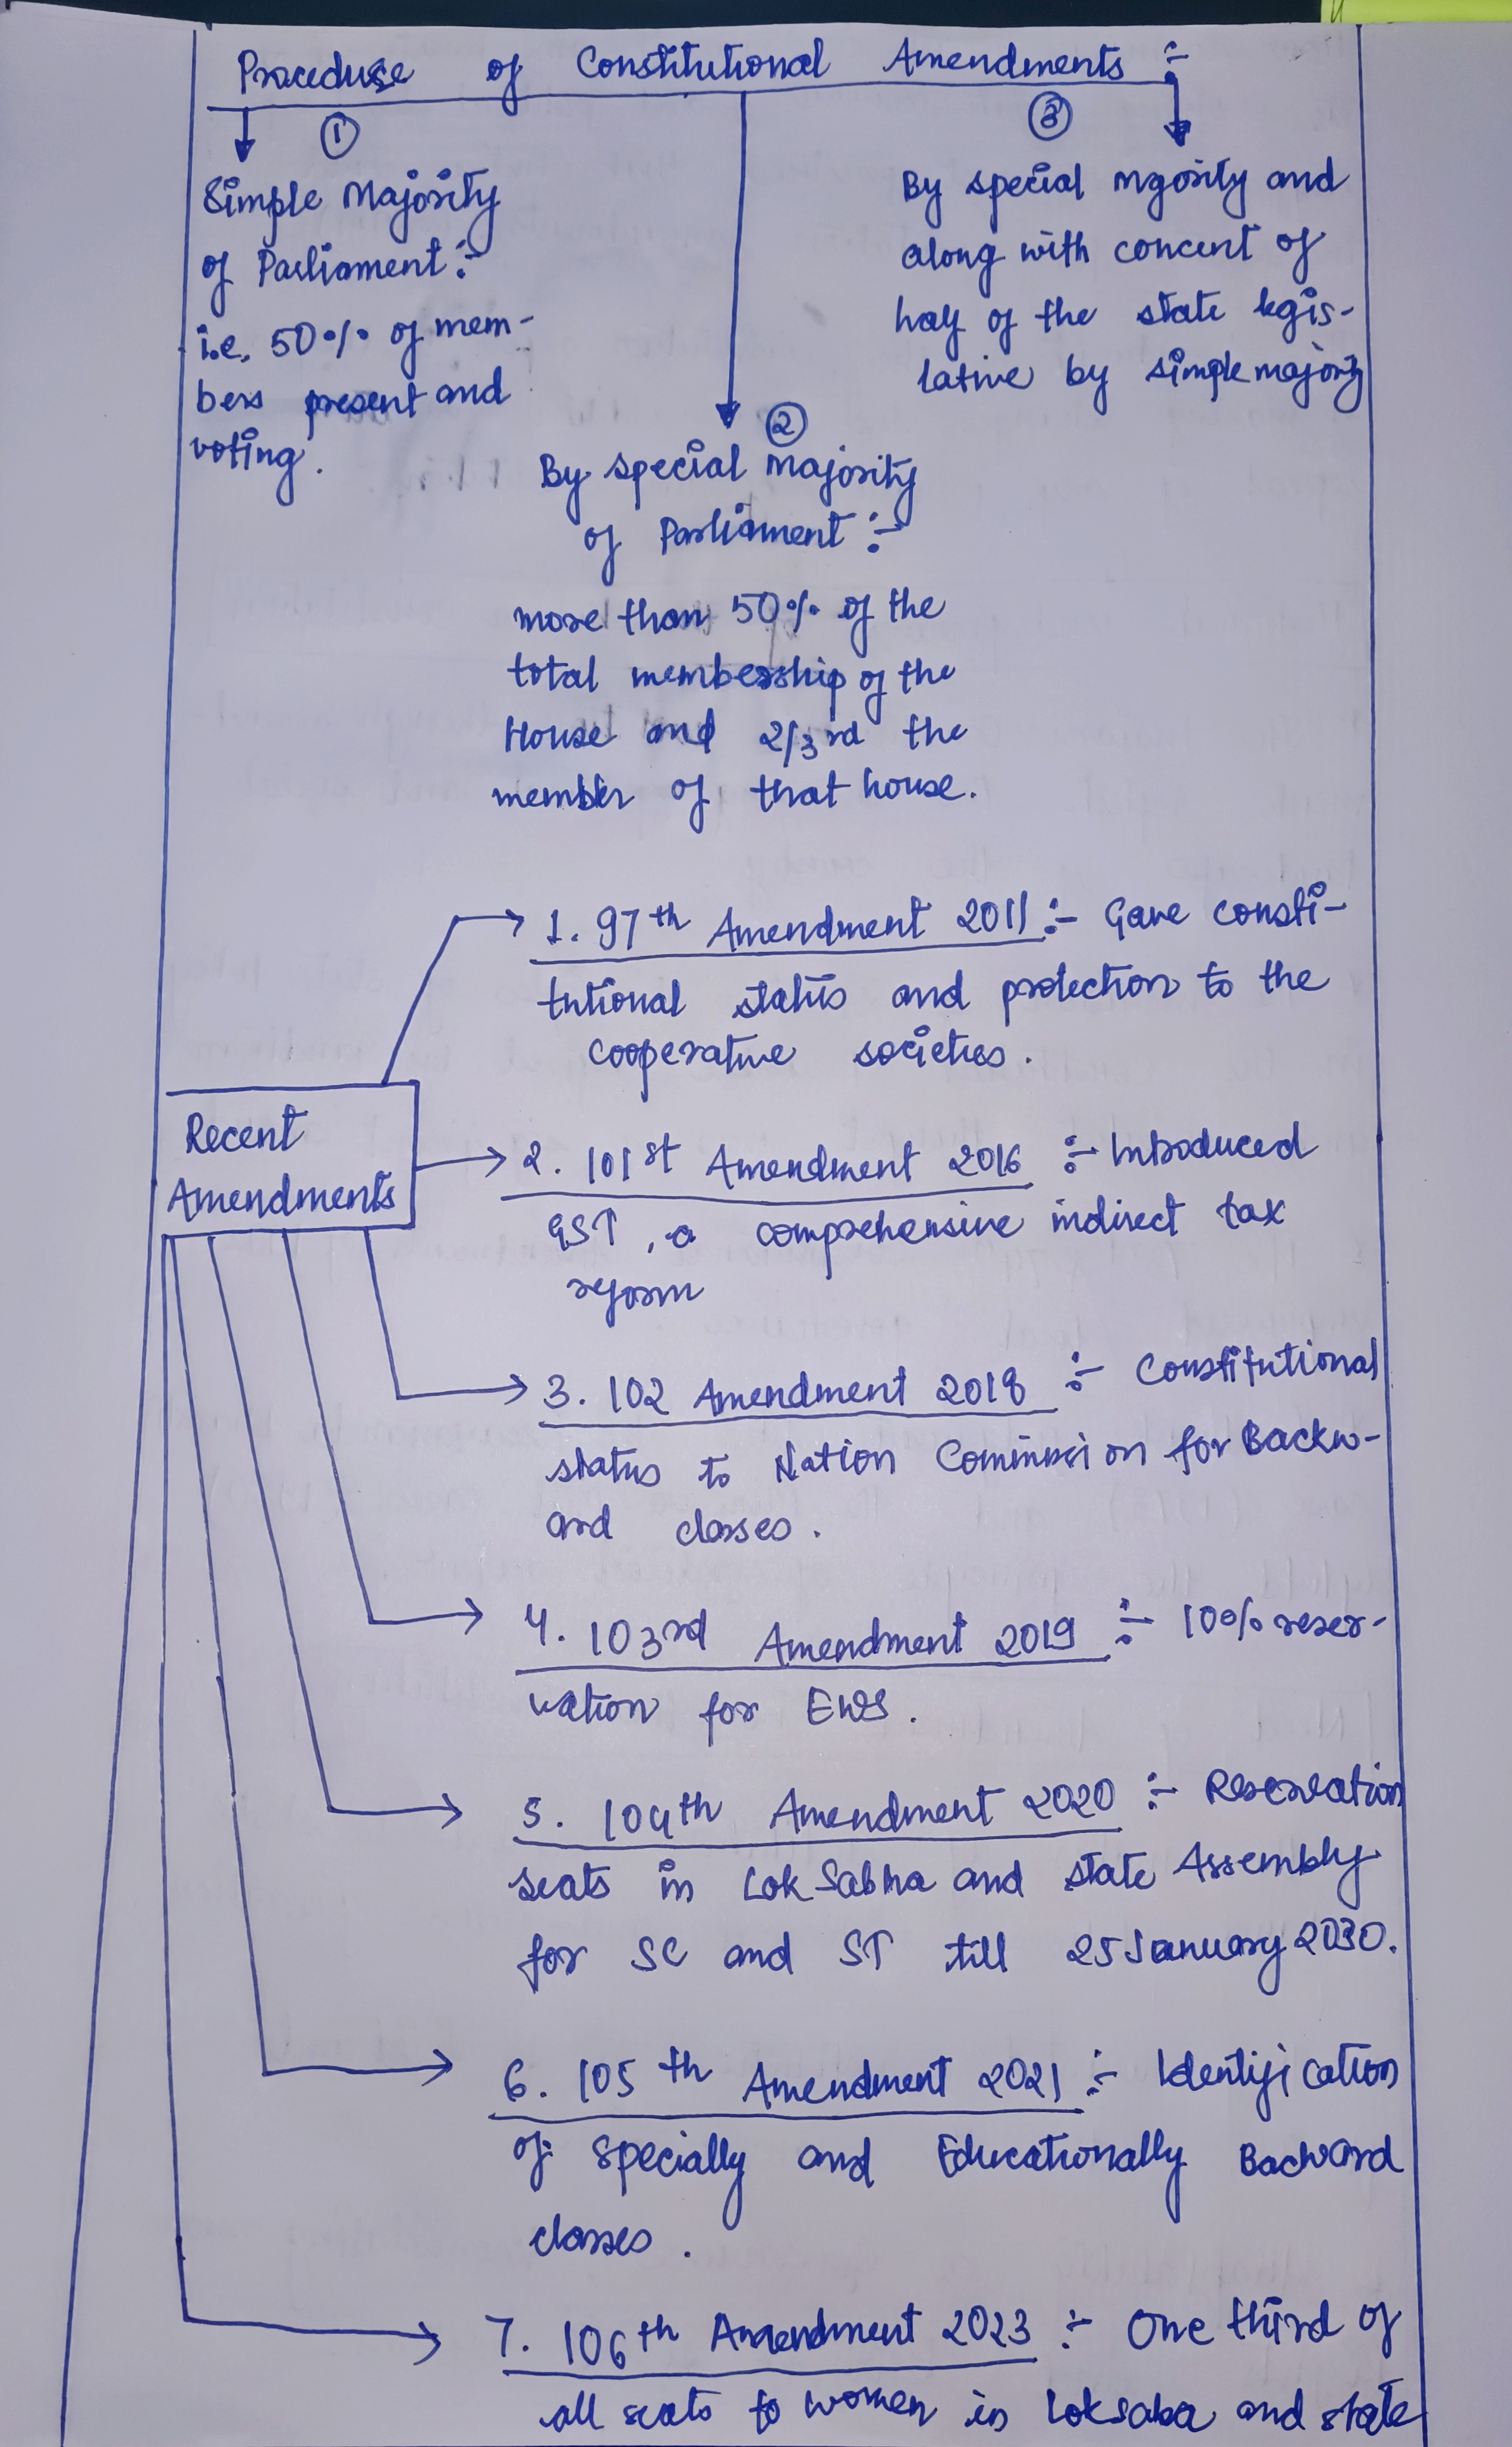 Procedure of Constitutional Amendments :-
①
Simple Majority
of Parliament :-
i.e, 50% of mem-
bers present and
voting.
②
By special majority
of Parliament :-
more than 50% of the
total membership of the
House and 2/3rd the
member of that house.
③
By special mgority and
along with concent of
half of the state legis-
lative by simple majority
Recent
Amendments
1. 97th Amendment 2011 :- Gave consti-
tutional status and protection to the
cooperative societies.
2. 101st Amendment 2016 :- Introduced
GST, a comprehensive indirect tax
reform
3. 102 Amendment 2018 :- Constitutional
status to Nation Commission for Backw-
ard classes.
4. 103rd Amendment 2019 :- 10% reser-
vation for EWS.
5. 104th Amendment 2020 :- Reservation
seats in Lok Sabha and state Assembly
for SC and ST till 25 January 2030.
6. 105th Amendment 2021 :- Identification
of specially and Educationally Backward
classes.
7. 106th Amendment 2023 :- One third of
all seats to women in Loksaba and state